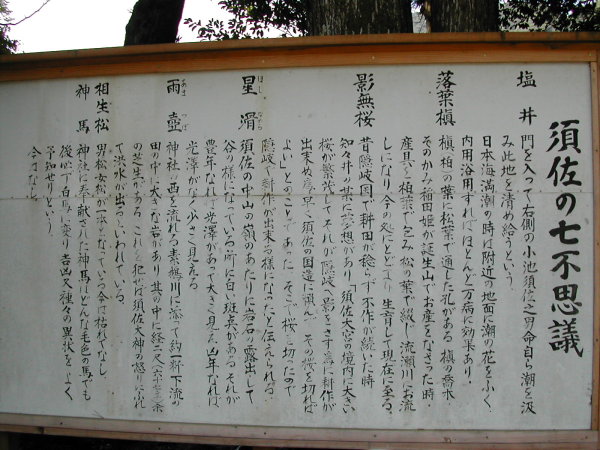 須佐の七不思議
塩井 門を入って右側の小池須佐之男命自ら潮を汲
み此地を清め給うという。
日本海満潮の時は附近の地面に潮の花をふく。
内用浴用すればほとんど万病に効果あり。
落葉槇 槇の葉に松葉で通した孔がある 槇の香木
そのかみ稲田姫が誕生山でお産をなさった時
産具と 槇葉で包み松の葉で綴し流瀬川にお流
しになり今の処にとどまり生育して現在に至る。
影無桜 昔隠岐国で耕田が稔らず不作が続いた時
知々井の某に 想があり「須佐大宮の境内に大きい
桜が繁茂してそれが隠岐へ影をさす為に耕作が
出来ぬ 早く須佐の国造に頼んで その桜を切れば
よい」とのことであった。そこで桜を切ったので
隠岐で耕作が出来る様になったと伝えられる。
星滑 ほしなめら 須佐の中山の嶺のあたりに岩石の露出して
谷の様になっている所に白い斑点がある それが
豊年なれば光澤があって大きく見え凶年なれば
光澤がなく少さく見える
雨壺 あまつぼ 神社の西を流れる素鵝川に添って約一粁下流の
田の中に大きな岩があり 其の中に径一尺
の芝生がある これを犯せば須佐大神の怒りにふれ
て洪水が出るといわれている。
相生松 男松女松が一本になっている 今は枯れてなし。
神馬 神社に奉献された神馬はどんな毛色の馬でも
後には白馬に変り吉凶又種々の異状をよく
予知せりという。
今はなし